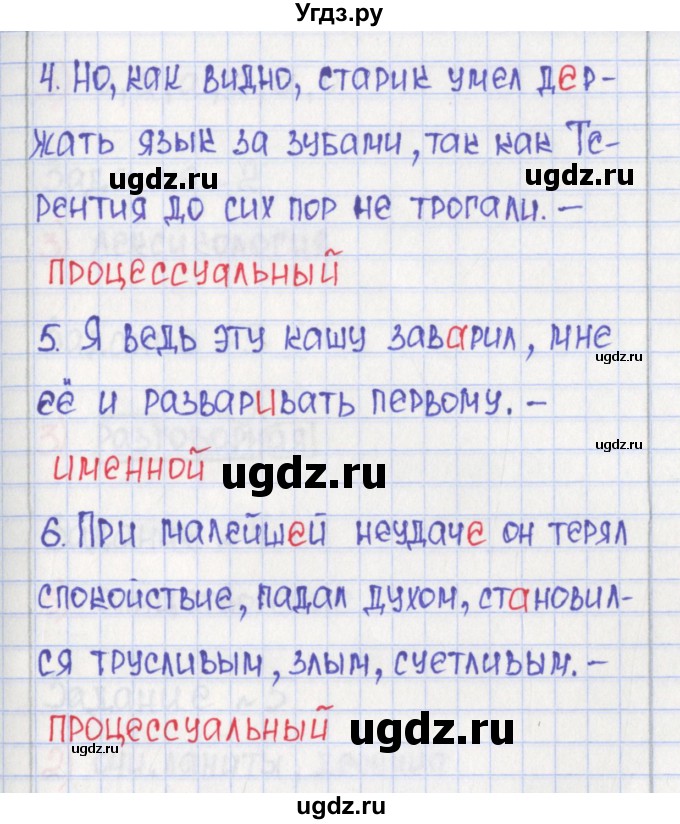 Угдз.ру
4. Но, как видно, старик умел дер-
жать язык за зубами, так как Те-
ugdz.ru ugdz.ru
рентия до сих пор не трогали. –
процессуальный
5. Я ведь эту кашу заварил, мне
ugdz.ru
её и разваривать первому. –
именной ugdz.ru
ugdz.ru
6. При малейшей неудаче он терял
спокойствие, падал духом, становил-
ся трусливым, злым, суетливым. –
процессуальный ugdz.ru
ugdz.ru
ugdz.ru